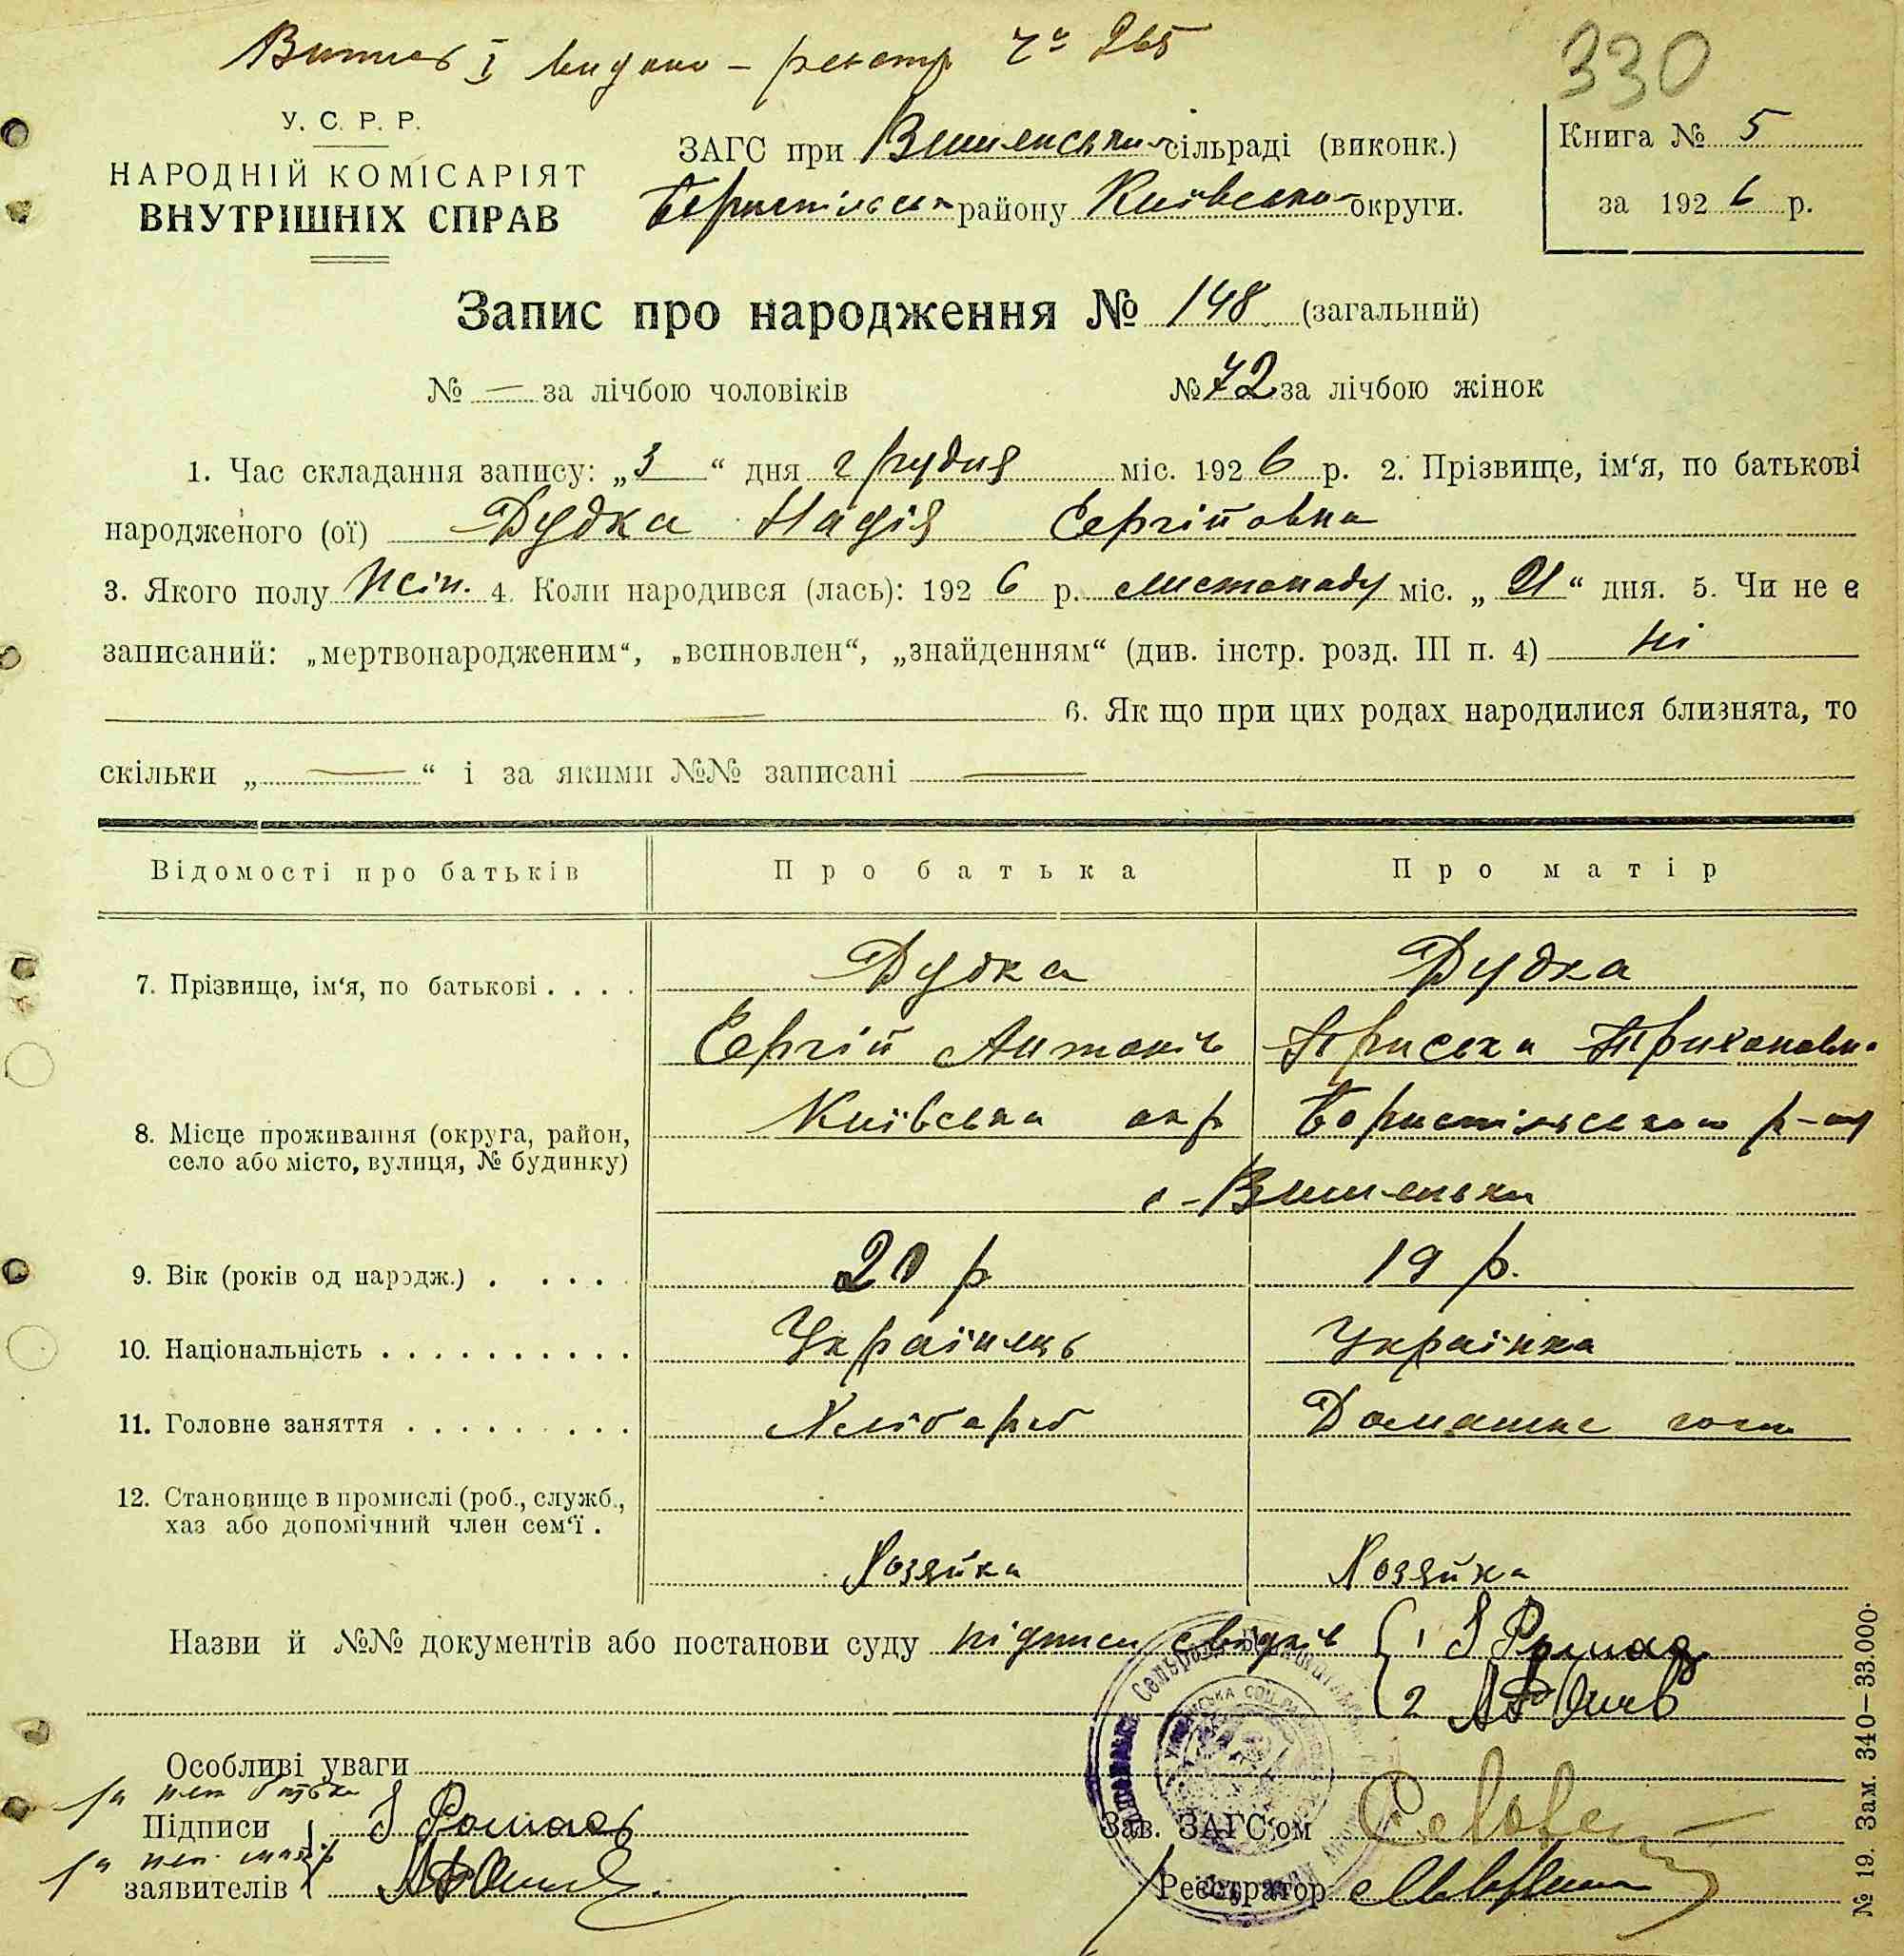 Випис І видано – реєстр Ч° 265
330
У. С. Р. Р.
НАРОДНІЙ КОМІСАРІЯТ
ВНУТРІШНІХ СПРАВ
ЗАГС при Вишенській сільраді (виконк.)
Бориспільськ району Київської округи.
Книга № 5
за 1926 р.
Запис про народження № 148 (загальний)
№ — за лічбою чоловіків № 72 за лічбою жінок
1. Час складання запису: „3“ дня грудня міс. 1926 р. 2. Прізвище, ім‘я, по батькові
народженого (ої) Дудка Надія Сергійовна
3. Якого полу жін. 4. Коли народився (лась): 1926 р. листопаду міс. „21“ дня. 5. Чи не є
записаний: „мертвонародженим“, „вспновлен“, „знайденням“ (див. інстр. розд. III п. 4) ні
6. Як що при цих родах народилися близнята, то
скільки „—“ і за якими №№ записані —
Відомості про батьків Про батька Про матір
7. Прізвище, ім‘я, по батькові . . . . Дудка Дудка
Сергій Антонів Приська Трихоновна
8. Місце проживання (округа, район, Київська окр Бориспільського р-ну
село або місто, вулиця, № будинку)
с - Вишеньки
9. Вік (років од народж.) . . . . 20 р 19 р.
10. Національність . . . . . . . . . . Українець Українка
11. Головне заняття . . . . . . . . . Хлібороб Домашнє госп
12. Становище в промислі (роб., служб.,
хаз або допомічний член сем‘ї .
Хозяйка Хозяйка
Назви й №№ документів або постанови суду підписи свидків 1 І Ромась
2
Особливі уваги
за неп батька
Підписи І Ромась
Зав. ЗАГС‘ом
за неп. матір
заявителів
Реєстратор
№ 19. Зам. 340–33.000.